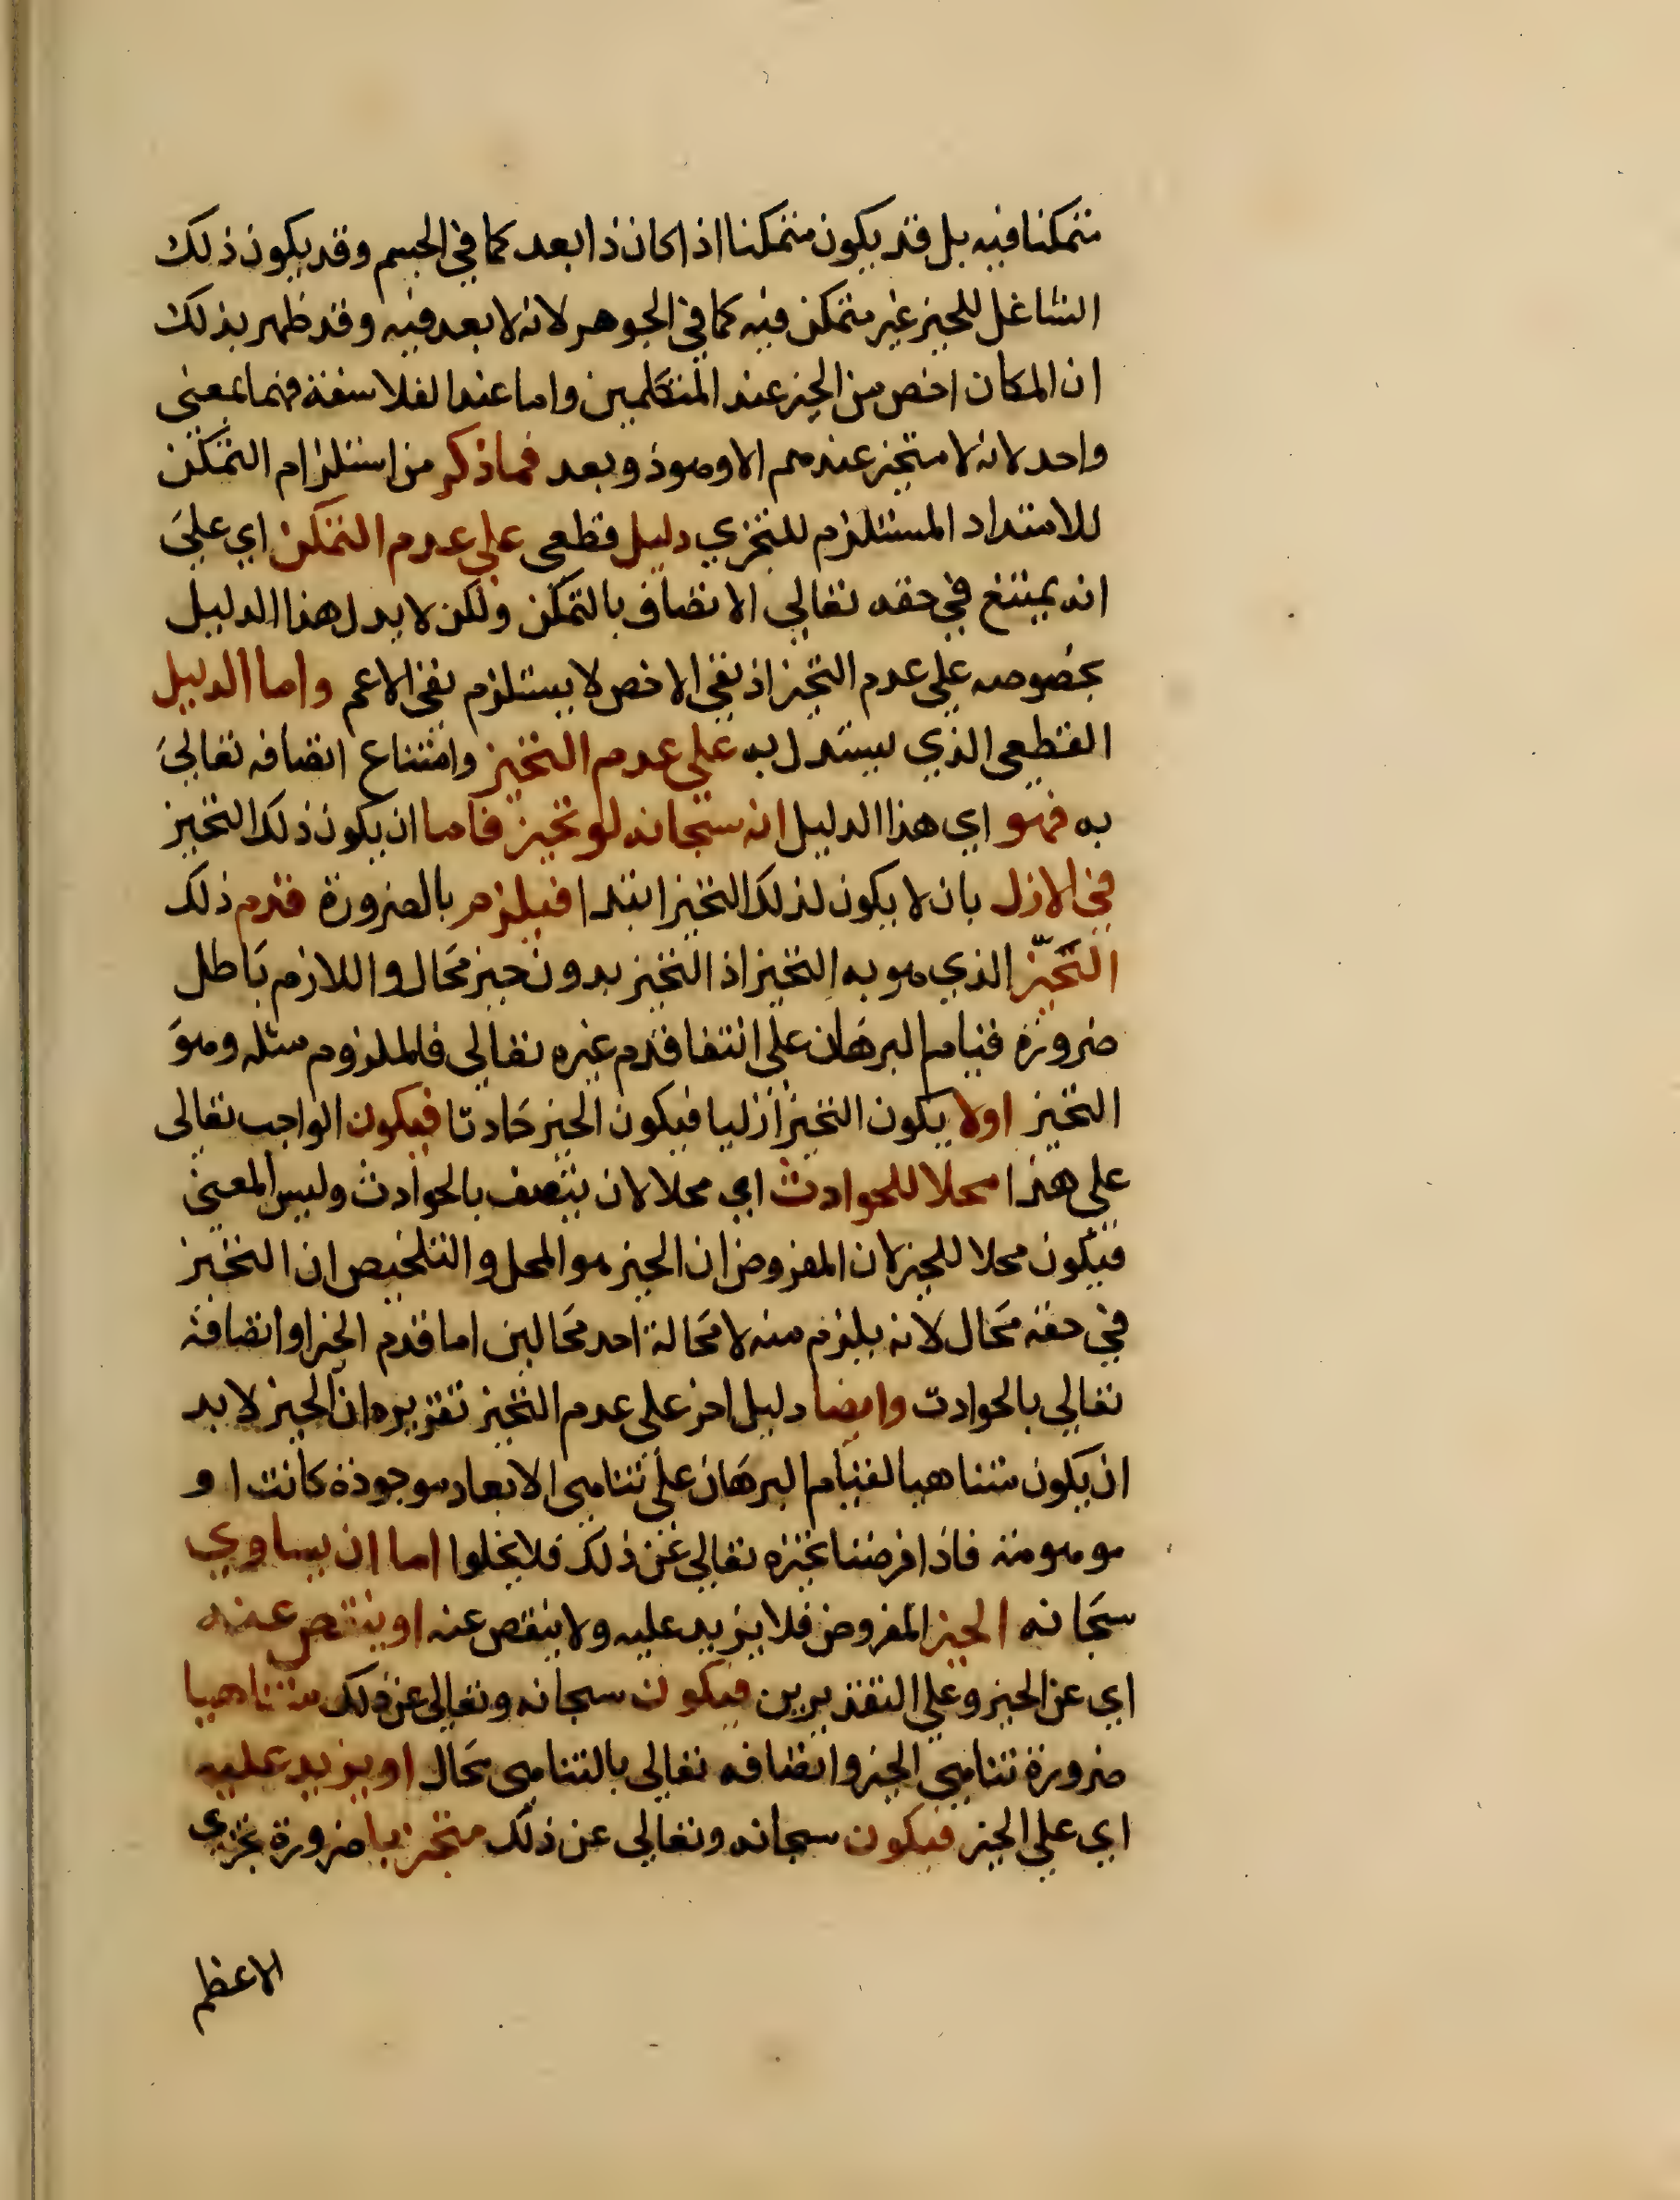 متمكنا فيه بل قد يكون متمكنا اذا كان ذا بعد كما في الجسم وقد يكون ذلك
الشاغل للحيز غير متمكن فيه كما في الجوهر لانه لا بعد فيه وقد ظهر بذلك
ان المكان اخص من الحيز عند المتكلمين واما عند الفلاسفة فهما بمعنى
واحد لانه لا متحيز عندهم الا وهوذ وبعد فما ذكر من استلزام التمكن
للامتداد المستلزم للتجزي دليل قطعي علي عدم التمكن اي علي
انه يمتنع في حقه تعالي الاتصاف بالتمكن ولكن لا يدل هذا الدليل
بخصوصه علي عدم التحيز اذ نفي الاخص لا يستلزم نفي الاعم واما الدليل
القطعي الذي يستدل به علي عدم التحيز وامتناع اتصافه تعالي
به فهو اي هذا الدليل انه سبحانه لو تحيز فاما ان يكون ذلك التحيز
في الازل بان لا يكون لذلك التحيز ابتدا فيلزم بالضرورة قدم ذلك
التحيّز الذي هو به التحيز اذ التحيز بدون حيز محال واللازم باطل
ضرورة قيام البرهان علي انتفا قدم غيره تعالي فالملزوم مثله وهو
التحيز اولا يكون التحيز ازليا فيكون الحيز حادثا فيكون الواجب تعالى
علي هذا محلا للحوادث اي محلا لان يتصف بالحوادث وليس المعني
فيكون محلا للحيز لان المفروض ان الحيز هو المحل والتلخيص ان التحيز
في حقه محال لانه يلزم منه لا محالة احد محالين اما قدم الحيز او اتصافه
تعالي بالحوادث وايضا دليل اخر علي عدم التحيز تقريره ان الحيز لا بد
ان يكون متناهيا لقيام البرهان علي تناهي الابعاد موجودة كانت او
موهومة فاذا فرضنا تحيزه تعالي عن ذلك فلا يخلوا اما ان يساوي
سبحانه الحيز المفروض فلا يزيد عليه ولا ينقص عنه او ينقص عنه
اي عن الحيز وعلي التقديرين فيكون سبحانه وتعالى عن ذلك متناهيا
ضرورة تناهي الحيز واتصافه تعالي بالتناهي محال او يزيد عليه
اي علي الحيز فيكون سبحانه وتعالي عن ذلك متجزيا ضرورة تجزي
الاعظم